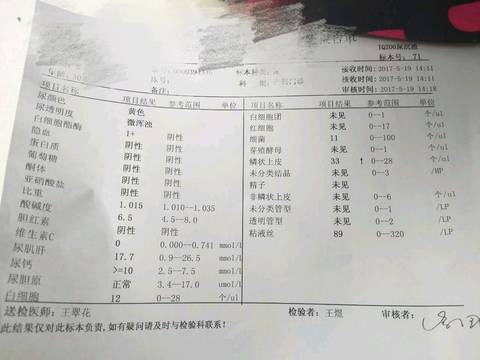 检验报告单
IQ200尿沉渣
标本号: 71
年龄: 30
床号:
备注:
标本种类: 尿
科 室: 产科门诊
接收时间: 2017-5-19 14:11
接收时间: 2017-5-19 14:11
审核时间: 2017-5-19 14:18
项目结果 参考范围 单位
尿颜色 黄色
尿透明度 微浑浊
白细胞酯酶 1+ 阴性
隐血 阴性 阴性
蛋白质 阴性 阴性
葡萄糖 阴性 阴性
酮体 阴性 阴性
亚硝酸盐 阴性 阴性
比重 1.015 1.010—1.035
酸碱度 6.5 4.5—8.0
胆红素
维生素C 0 0.000—0.741 mmol/l
尿肌肝 17.7 0.9—26.5 mmol/l
尿钙 >=10 2.5—7.5 mmol/l
尿胆原 正常 3.4—17.0 umol/l
白细胞 12 0—28 个/ul
项目名称 项目结果 参考范围 单位
白细胞团 未见 0—1 个/ul
红细胞 未见 0—17 个/ul
细菌 11 0—100 个/ul
芽殖酵母 未见 0—1 个/ul
鳞状上皮 33 ↑ 0—28 个/ul
未分类结晶 未见 0—3 /HP
精子 未见
非鳞状上皮 未见 0—6 个/ul
未分类管型 未见 0—1 /LP
透明管型 未见 0—2 /LP
粘液丝 89 0—320 /LP
送检医师: 王翠花 检验者: 王煜 审核者:
此结果仅对此标本负责, 如有疑问请及时与检验科联系!